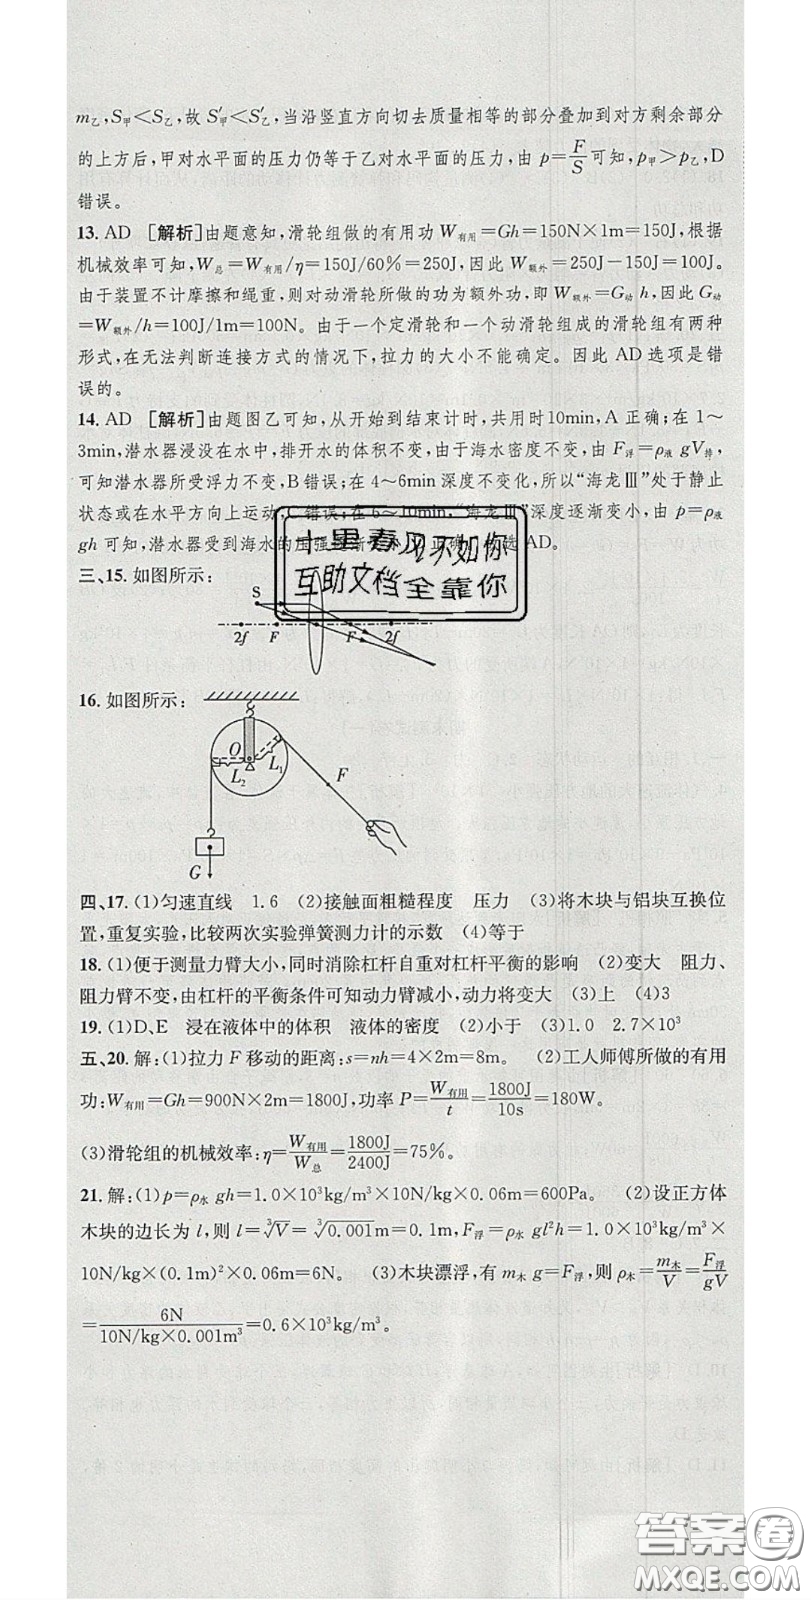 m乙,S甲<S乙,故S′甲<S′乙,当沿竖直方向切去质量相等的部分叠加到对方剩余部分
的上方后,甲对水平面的压力仍等于乙对水平面的压力,由p=F/S可知,p甲>p乙,D
错误。
13. AD [解析]由题意知,滑轮组做的有用功W有用=Gh=150N×1m=150J,根据
机械效率可知,W总=W有用/η=150J/60%=250J,因此W额外=250J-150J=100J。
由于装置不计摩擦和绳重,则对动滑轮所做的功为额外功,即W额外=G动h,因此G动
=W额外/h=100J/1m=100N。由于一个定滑轮和一个动滑轮组成的滑轮组有两种
形式,在无法判断连接方式的情况下,拉力的大小不能确定。因此AD选项是错
误的。
14. AD [解析]由题图乙可知,从开始到结束计时,共用时10min,A正确;在1~
3min,潜水器浸没在水中,排开水的体积不变,由于海水密度不变,由F浮=ρ液gV排,
可知潜水器所受浮力不变,B错误;在4~6min深度不变化,所以“海龙Ⅲ”处于静止
状态或在水平方向上运动,C错误;在6~10min,“海龙Ⅲ”深度逐渐变小,由p=ρ液
gh可知,潜水器受到海水的压强逐渐变小,D正确。故选AD。
十里春风不如你
互助文档全靠你
三、15. 如图所示:
S
2f F F 2f
16. 如图所示:
O
L2 L1
F
G
四、17. (1)匀速直线 1.6 (2)接触面粗糙程度 压力 (3)将木块与铝块互换位
置,重复实验,比较两次实验弹簧测力计的示数 (4)等于
18. (1)便于测量力臂大小,同时消除杠杆自重对杠杆平衡的影响 (2)变大 阻力、
阻力臂不变,由杠杆的平衡条件可知动力臂减小,动力将变大 (3)上 (4)3
19. (1)D、E 浸在液体中的体积 液体的密度 (2)小于 (3)1.0 2.7×10³
五、20. 解:(1)拉力F移动的距离:s=nh=4×2m=8m。 (2)工人师傅所做的有用
功:W有用=Gh=900N×2m=1800J,功率P=W有用/t=1800J/10s=180W。
(3)滑轮组的机械效率:η=W有用/W总=1800J/2400J=75%。
21. 解:(1)p=ρ水gh=1.0×10³kg/m³×10N/kg×0.06m=600Pa。 (2)设正方体
木块的边长为l,则l=∛V=∛0.001m=0.1m,F浮=ρ水gl²h=1.0×10³kg/m³×
10N/kg×(0.1m)²×0.06m=6N。 (3)木块漂浮,有m木g=F浮,则ρ木=m木/V=F浮/gV
=6N/(10N/kg×0.001m³)=0.6×10³kg/m³。
答案圈
MXQE.COM